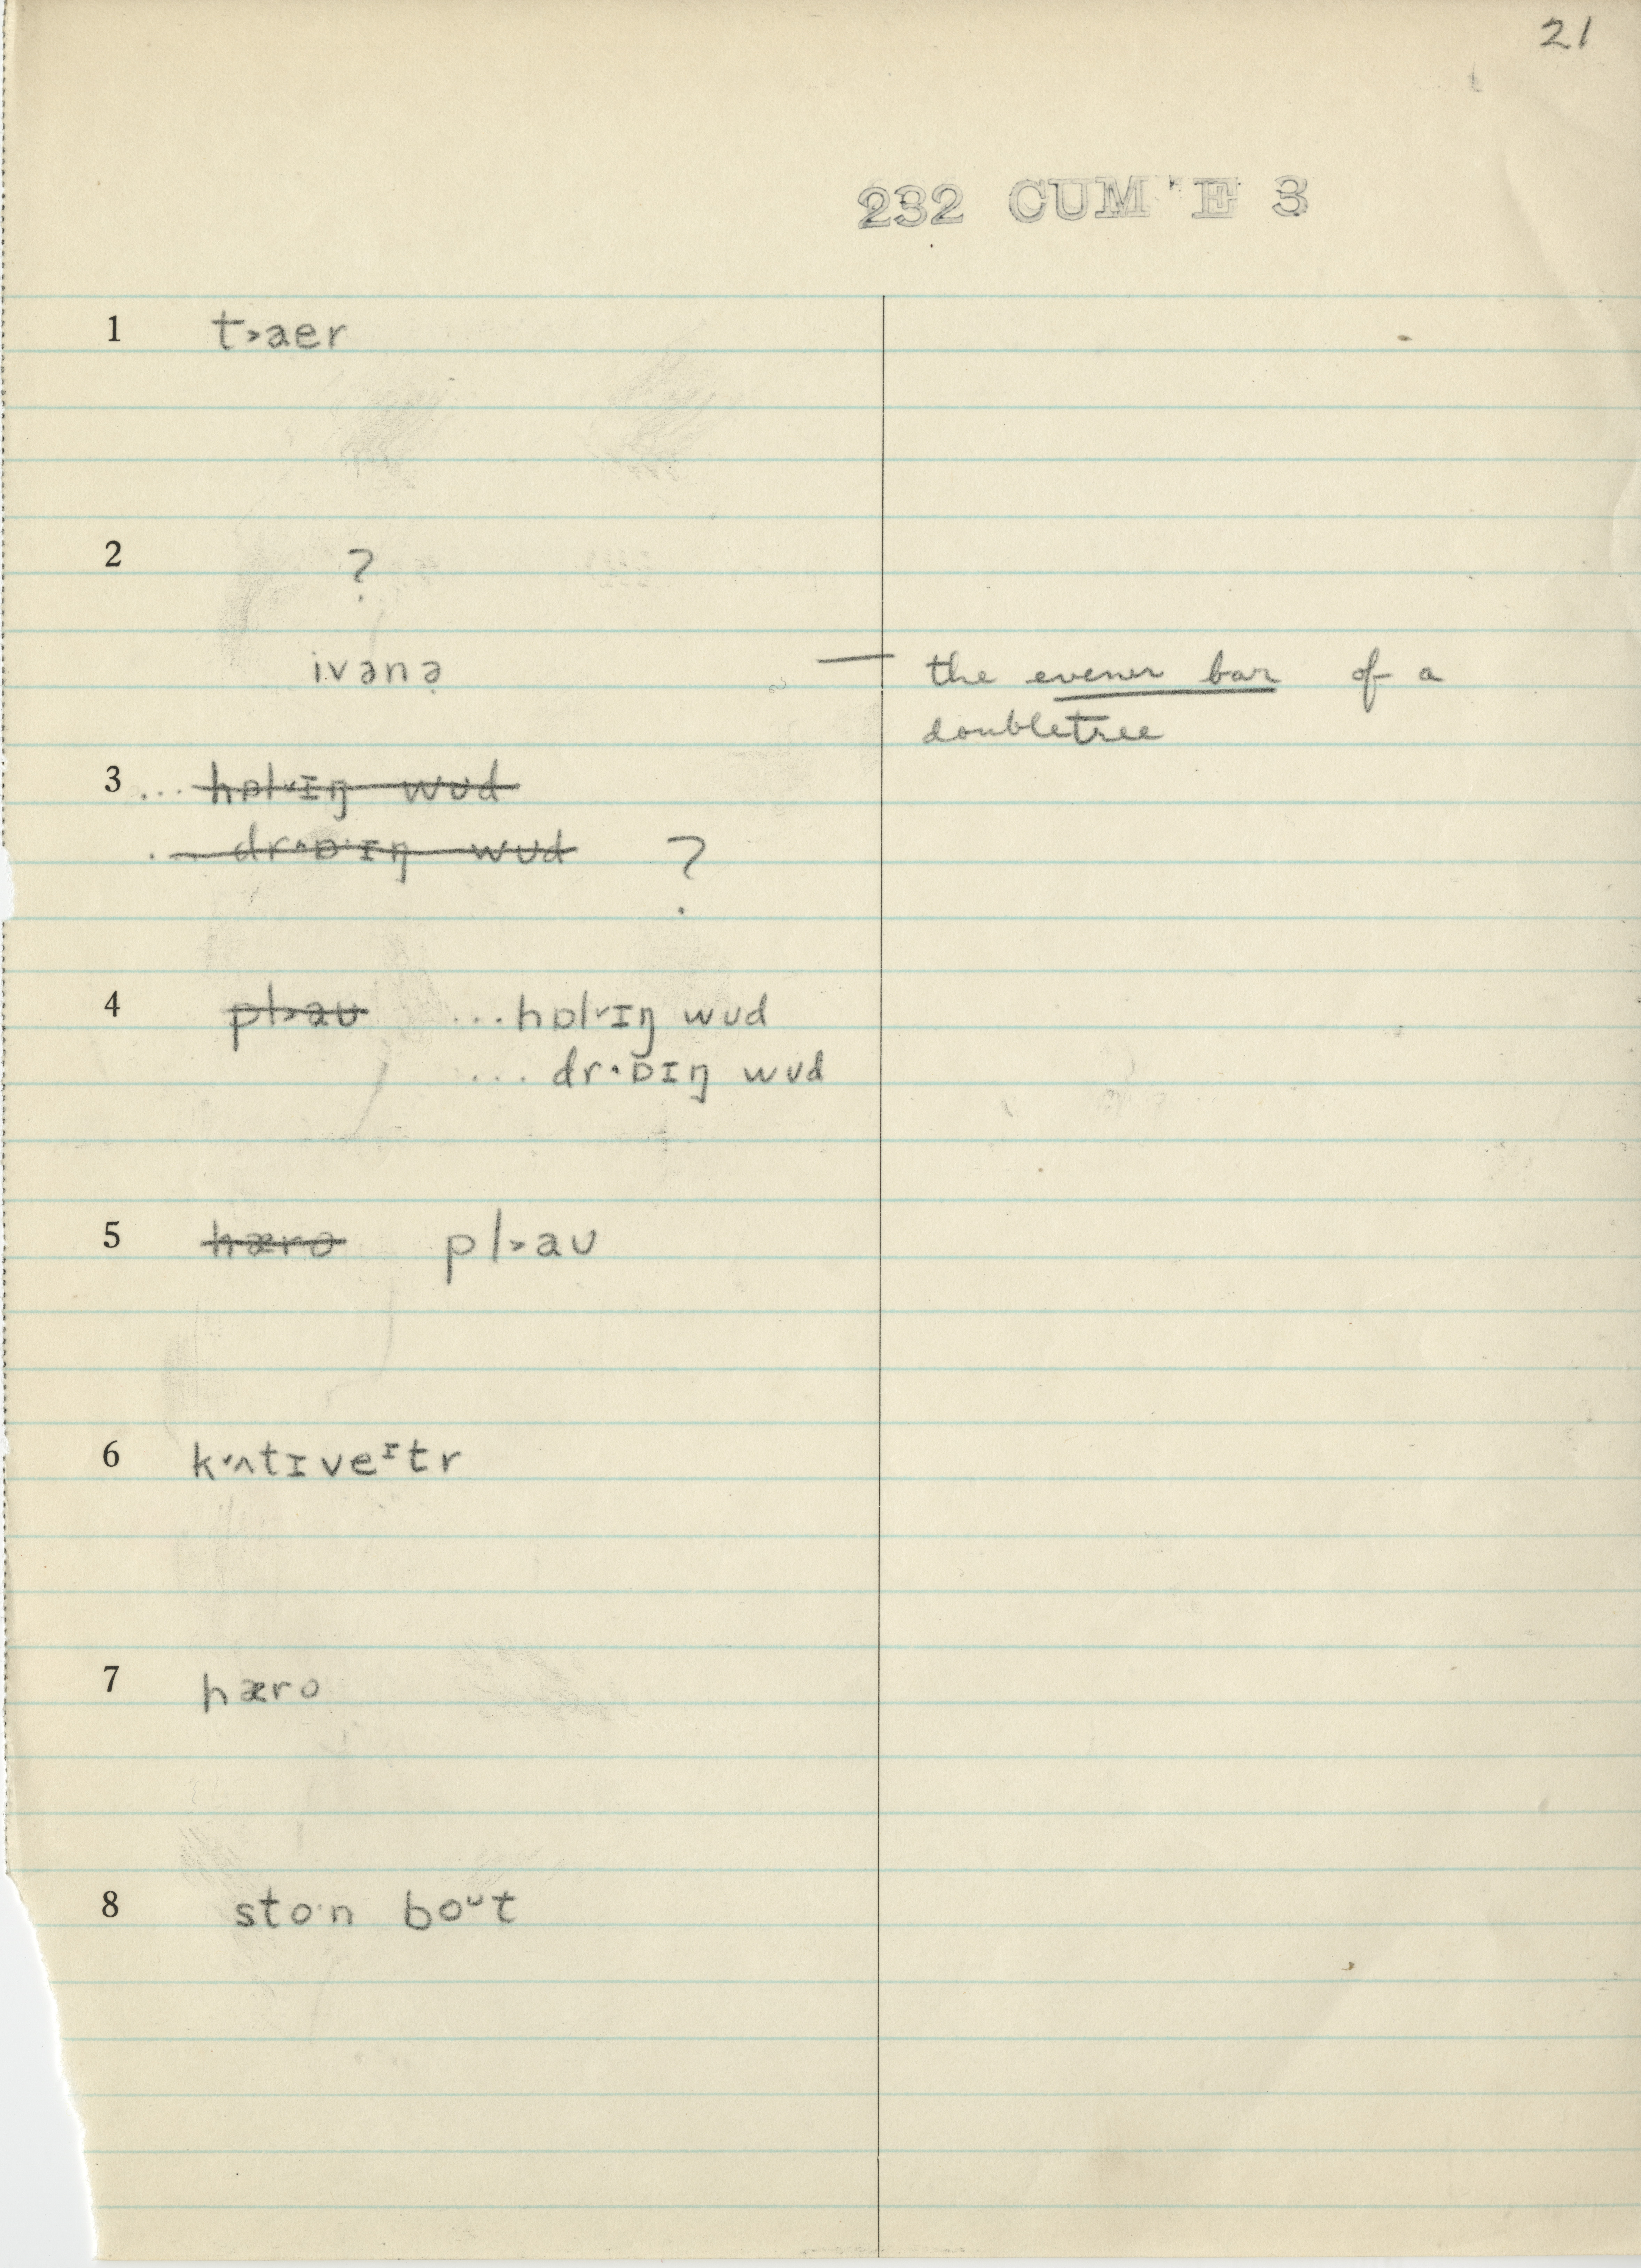 21
232 CUM'E 3
1 t˃aer
2 ?
ivənə̣ — the evener bar of a
doubletree
3 ... hɒl˅ɪŋ wud
... dr˄ɒ·ɪŋ wud ?
4 pl˃aʊ ... hɒl˅ɪŋ wud
... dr˄ɒɪŋ wud
5 hæro pl˃aʊ
6 k˅ʌtɪveᶦtr
7 hæro
8 sto·n boᶷt